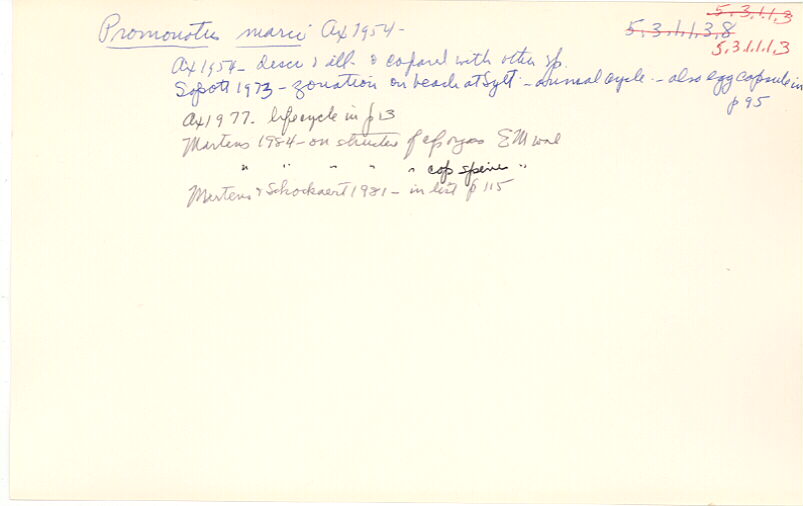 5.3.1.1.3
Promonotus marci Ax 1954-
5.3.1.1.3.8
5.3.1.1.1.3
Ax 1954 - descr & ill. & compared with other sp.
Sopott 1973 - zonation on beach at Sylt - annual cycle - also egg capsule in
p 95
Ax 1977. lifecycle in p 13
Martens 1984 - on structure of cop organ EM work
" " " " " cop spine "
Martens & Schockaert 1981 - in list p 115